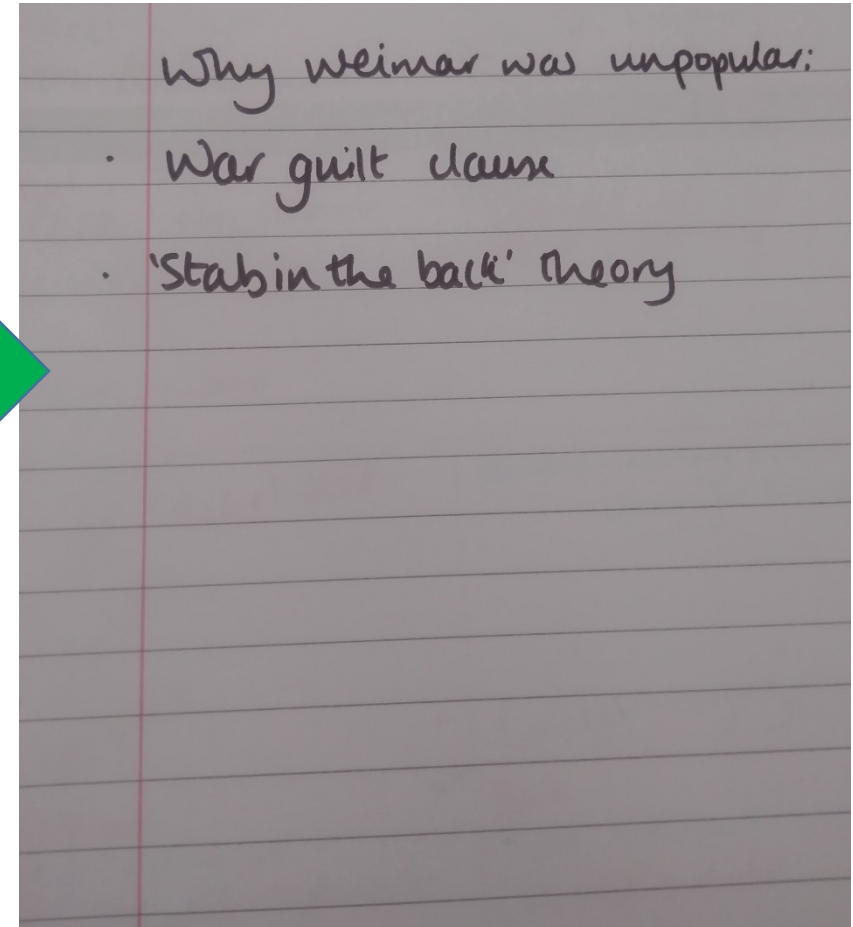 Why Weimar was unpopular:
· War guilt clause
· 'Stab in the back' theory